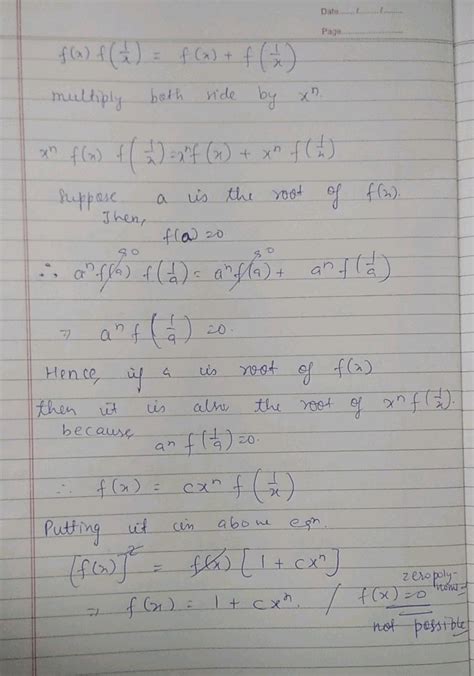 Date...../...../.....
Page.....................
f(x) f(1/x) = f(x) + f(1/x)
multiply both side by xⁿ
xⁿ f(x) f(1/x) = xⁿf(x) + xⁿ f(1/x)
Suppose a is the root of f(x).
Then,
f(a) = 0
∴ aⁿ f(a)→0 f(1/a) = aⁿ f(a)→0 + aⁿ f(1/a)
⇒ aⁿ f(1/a) = 0.
Hence, if a is root of f(x)
then it is also the root of xⁿ f(1/x).
because
aⁿ f(1/a) = 0.
∴ f(x) = cxⁿ f(1/x)
Putting it in above eqn.
[f(x)]² = f(x) [1 + cxⁿ]
⇒ f(x) = 1 + cxⁿ. / f(x) = 0
zero poly-
nomial
not possible